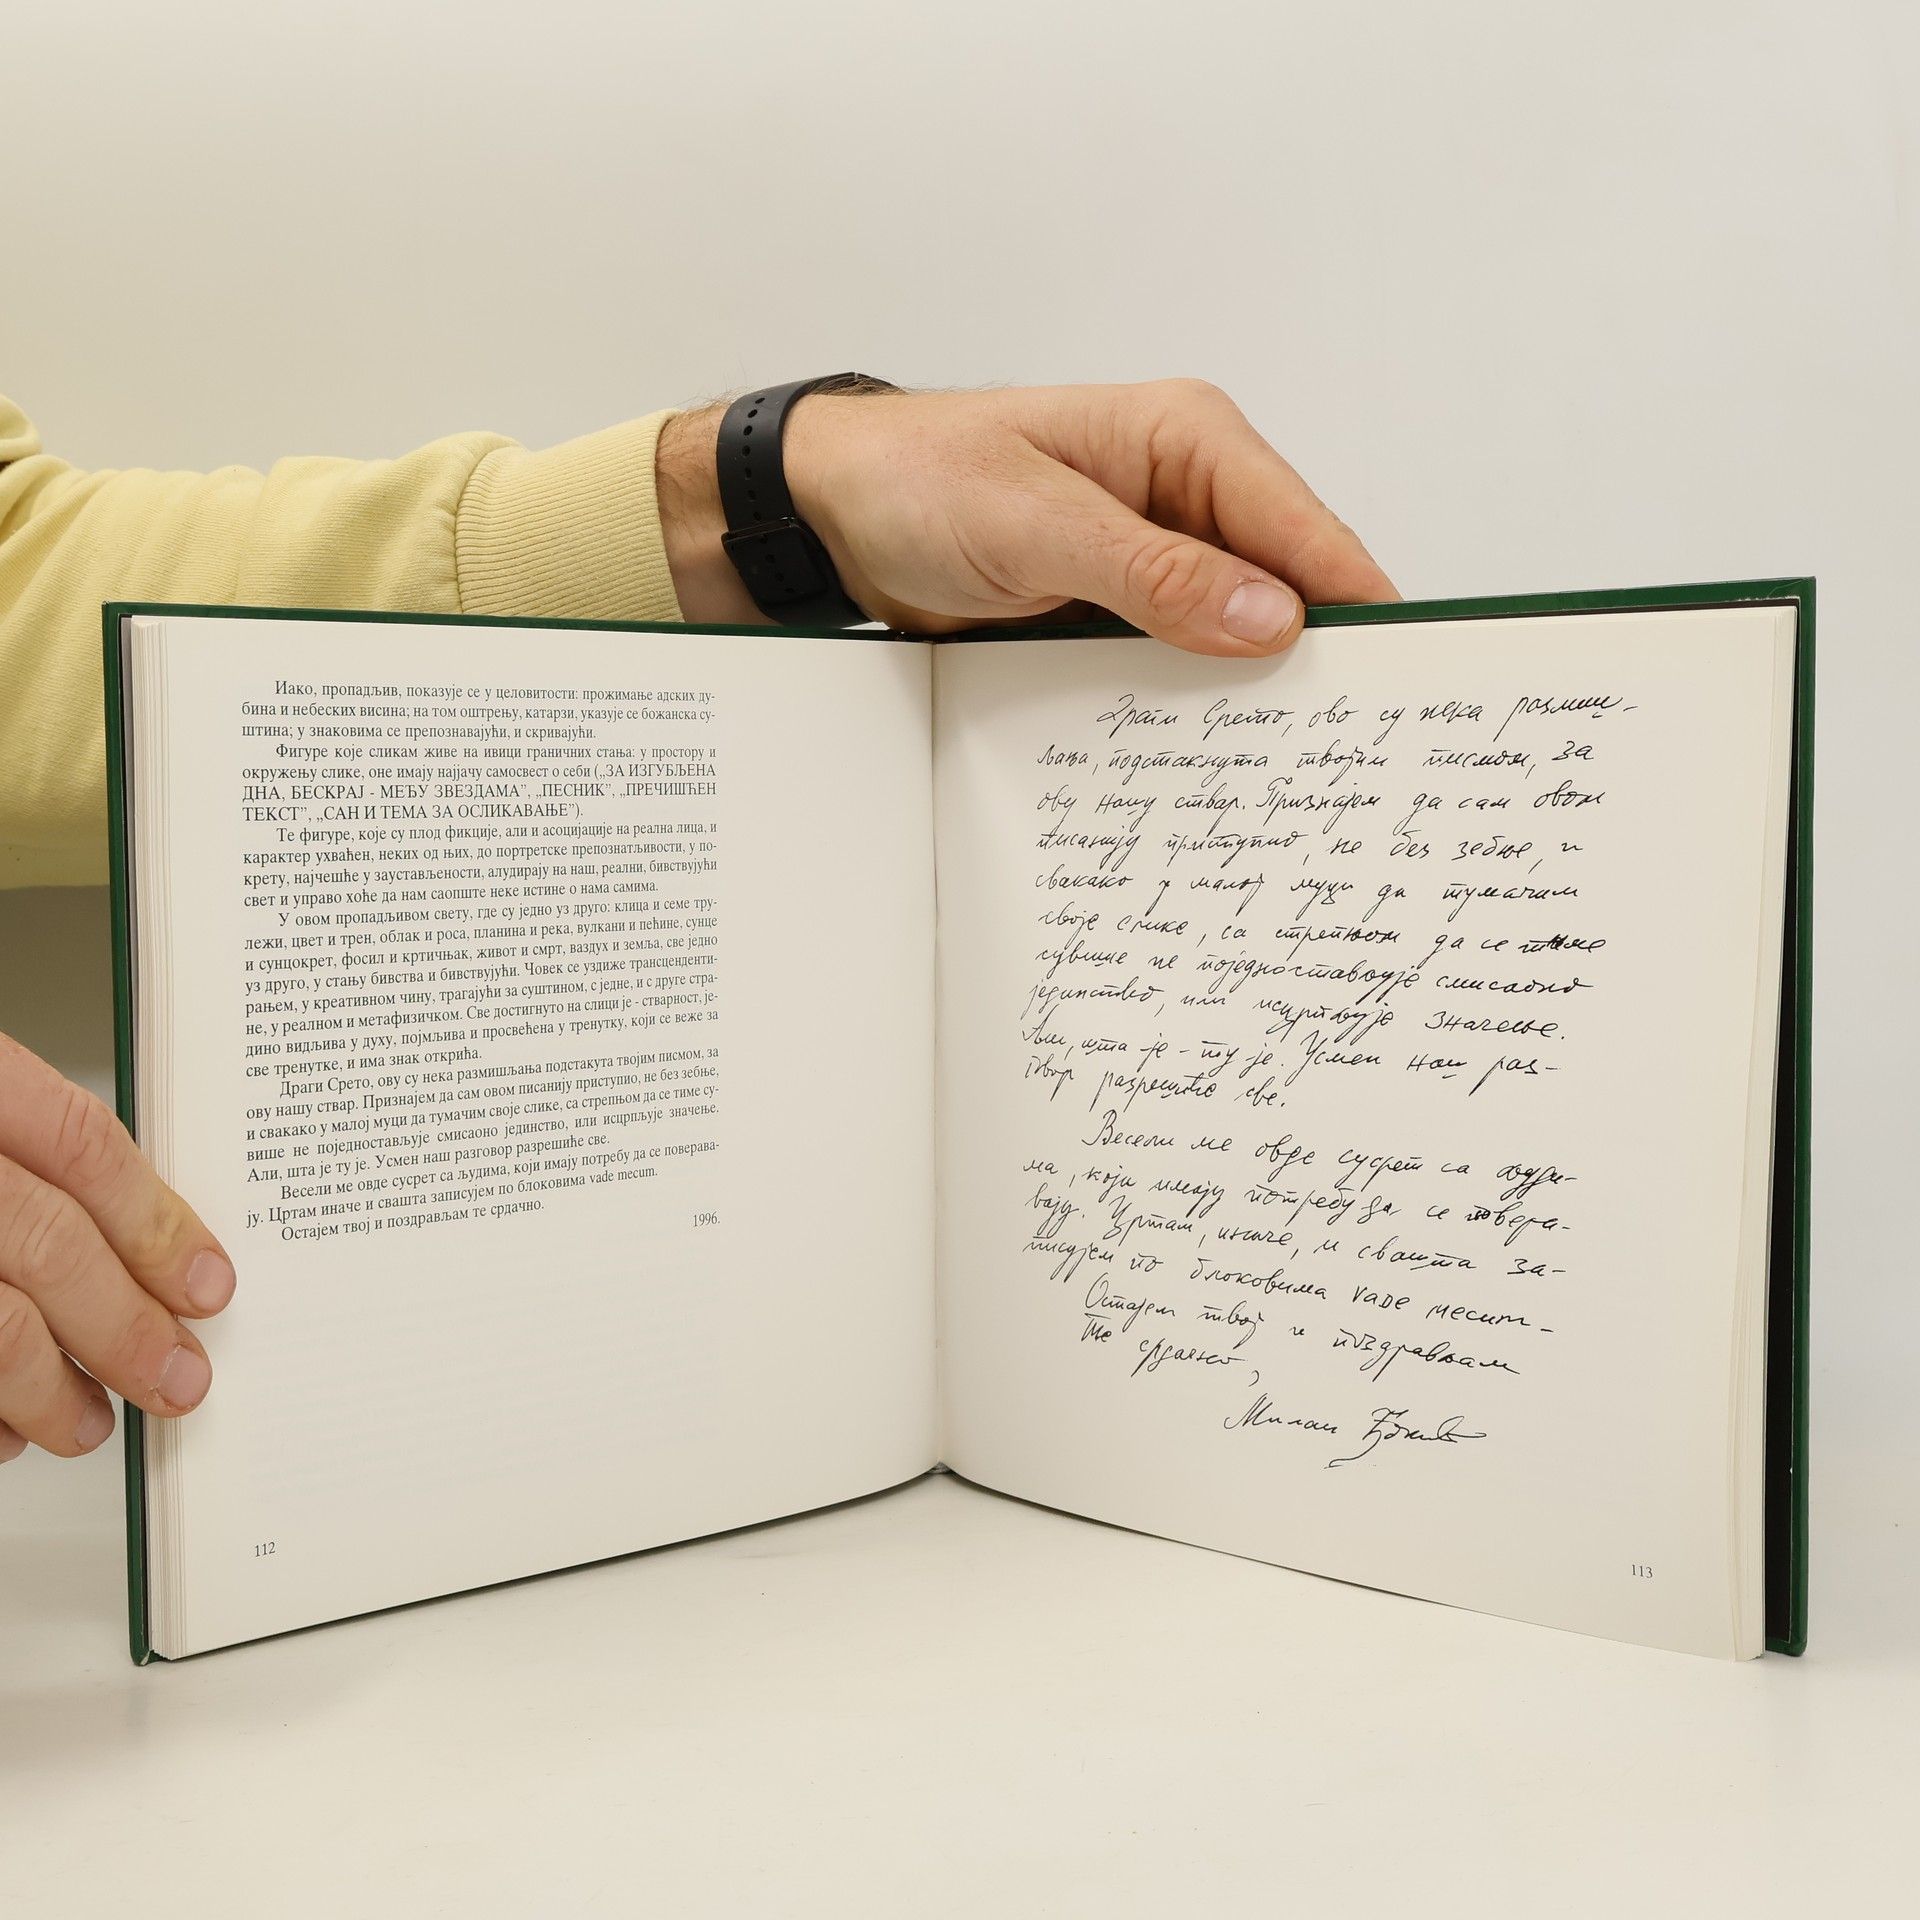 Иако, пропадљив, показује се у целовитости: прожимање адских ду-
бина и небеских висина; на том оштрењу, катарзи, указује се божанска су-
штина; у знаковима се препознавајући, и скривајући.
Фигуре које сликам живе на ивици граничних стања: у простору и
окружењу слике, оне имају најјачу самосвест о себи („ЗА ИЗГУБЉЕНА
ДНА, БЕСКРАЈ - МЕЂУ ЗВЕЗДАМА”, „ПЕСНИК”, „ПРЕЧИШЋЕН
ТЕКСТ”, „САН И ТЕМА ЗА ОСЛИКАВАЊЕ”).
Те фигуре, које су плод фикције, али и асоцијације на реална лица, и
карактер ухваћен, неких од њих, до портретске препознатљивости, у по-
крету, најчешће у заустављености, алудирају на наш, реални, бивствујући
свет и управо хоће да нам саопште неке истине о нама самима.
У овом пропадљивом свету, где су једно уз друго: клица и семе тру-
лежи, цвет и трен, облак и роса, планина и река, вулкани и пећине, сунце
и сунцокрет, фосил и кртичњак, живот и смрт, ваздух и земља, све једно
уз друго, у стању бивства и бивствујући. Човек се уздиже трансценденти-
рањем, у креативном чину, трагајући за суштином, с једне, и с друге стра-
не, у реалном и метафизичком. Све достигнуто на слици је - стварност, је-
дино видљива у духу, појмљива и просвећена у тренутку, који се веже за
све тренутке, и има знак открића.
Драги Срето, ову су нека размишљања подстакута твојим писмом, за
ову нашу ствар. Признајем да сам овом писанију приступио, не без зебње,
и свакако у малој муци да тумачим своје слике, са стрепњом да се тиме су-
више не поједностављује смисаоно јединство, или исцрпљује значење.
Али, шта је ту је. Усмен наш разговор разрешиће све.
Весели ме овде сусрет са људима, који имају потребу да се поверава-
ју. Цртам иначе и свашта записујем по блоковима vade mecum.
Остајем твој и поздрављам те срдачно.
1996.
112
Драги Срето, ово су нека размиш-
љања, подстакнута твојим писмом, за
ову нашу ствар. Признајем да сам овом
писанију приступио, не без зебње, и
свакако у малој муци да тумачим
своје слике, са стрепњом да се тиме
сувише не поједностављује смисаоно
јединство, или исцрпљује значење.
Али, шта је - ту је. Усмен наш раз-
говор разрешиће све.
Весели ме овде сусрет са људи-
ма, који имају потребу да се повера-
вају. Цртам, иначе, и свашта за-
писујем по блоковима vade mecum -
Остајем твој и поздрављам
те срдачно,
Милан
113